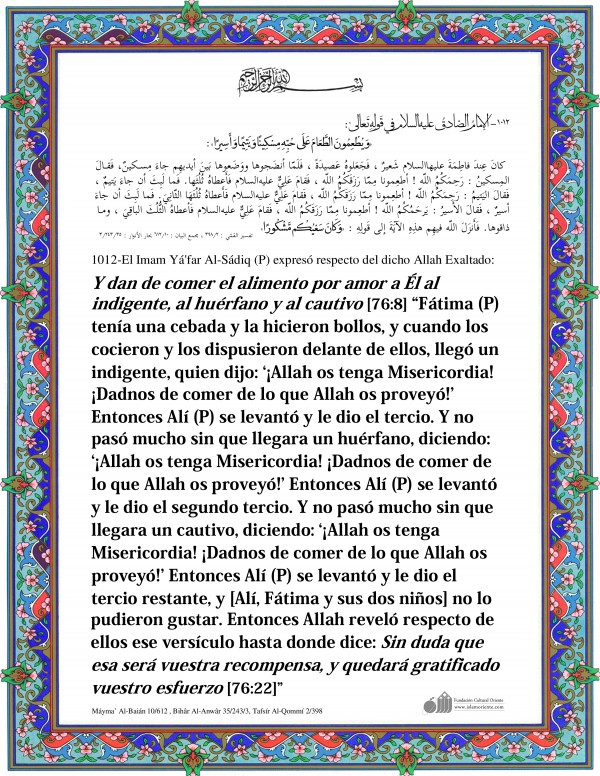 بسم الله الرحمن الرحيم
١٠١٢-الإمام الصادق عليه السلام في قوله تعالى:
وَيُطْعِمُونَ الطَّعَامَ عَلَى حُبِّهِ مِسْكِينًا وَيَتِيمًا وَأَسِيرًا:
كانَ عِندَ فاطِمَةَ عليهاالسلام شَعيرٌ ، فَجَعَلوهُ عَصيدَةً ، فَلَمّا أنضَجوها ووَضَعوها بَينَ أيديهِم جاءَ مِسكينٌ، فَقالَ
المِسكينُ : رَحِمَكُمُ اللّه ! أطعِمونا مِمّا رَزَقَكُمُ اللّه ، فَقامَ عَلِيٌّ عليه‌السلام فأعطاهُ ثُلُثَها. فما لَبِثَ أن جاءَ يَتيمٌ ،
فَقالَ اليَتيمُ : رَحِمَكُمُ اللّه ! أطعِمونا مِمّا رَزَقَكُمُ اللّه ، فَقامَ عَلِيٌّ عليه‌السلام فأعطاهُ الثُّلُثَ الثّانِيَ. فما لَبِثَ أن جاءَ
أسيرٌ ، فَقالَ الأسيرُ : يَرحَمُكُمُ اللّه ! أطعِمونا مِمّا رَزَقَكُمُ اللّه ، فَقامَ عَلِيٌّ عليه‌السلام فأعطاهُ الثُّلُثَ الباقِيَ ، وما
ذاقوها. فَأنزَلَ اللّه فيهِم هذِهِ الآيَةَ إلى قَولِهِ : وَكَانَ سَعْيُكُم مَّشْكُورًا.
تفسير القمّي : ٢/٣٩٨ ، مجمع البيان : ١٠/٦١٢ بحار الأنوار : ٣/٢٤٣/٣٥.
1012-El Imam Yá'far Al-Sádiq (P) expresó respecto del dicho Allah Exaltado:
Y dan de comer el alimento por amor a Él al
indigente, al huérfano y al cautivo [76:8] “Fátima (P)
tenía una cebada y la hicieron bollos, y cuando los
cocieron y los dispusieron delante de ellos, llegó un
indigente, quien dijo: ‘¡Allah os tenga Misericordia!
¡Dadnos de comer de lo que Allah os proveyó!’
Entonces Alí (P) se levantó y le dio el tercio. Y no
pasó mucho sin que llegara un huérfano, diciendo:
‘¡Allah os tenga Misericordia! ¡Dadnos de comer de
lo que Allah os proveyó!’ Entonces Alí (P) se levantó
y le dio el segundo tercio. Y no pasó mucho sin que
llegara un cautivo, diciendo: ‘¡Allah os tenga
Misericordia! ¡Dadnos de comer de lo que Allah os
proveyó!’ Entonces Alí (P) se levantó y le dio el
tercio restante, y [Alí, Fátima y sus dos niños] no lo
pudieron gustar. Entonces Allah reveló respecto de
ellos ese versículo hasta donde dice: Sin duda que
esa será vuestra recompensa, y quedará gratificado
vuestro esfuerzo [76:22]”
Máyma’ Al-Baián 10/612 , Bihâr Al-Anwâr 35/243/3, Tafsír Al-Qommí 2/398
Fundación Cultural Oriente
www.islamoriente.com